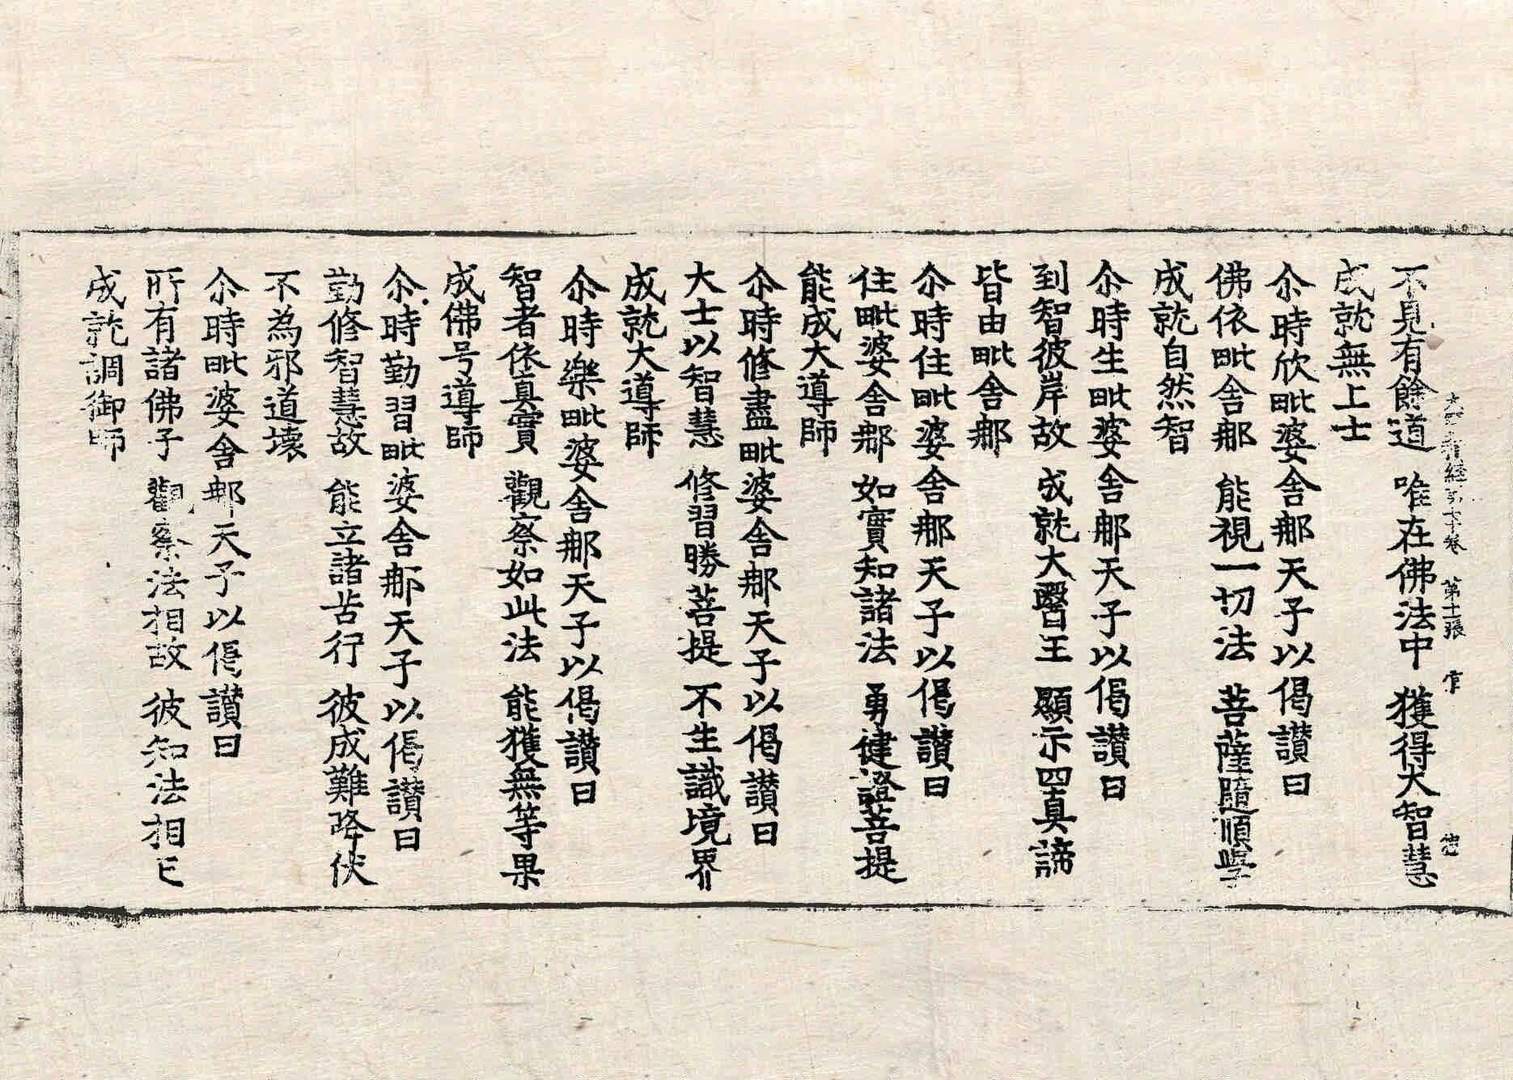 不見有餘道 唯在佛法中 獲得大智慧
成就無上士
尒時欣毗婆舍郍天子以偈讃曰
佛依毗舍郍 能視一切法 菩薩隨順學
成就自然智
尒時生毗婆舍郍天子以偈讃曰
到智彼岸故 成就大醫王 顯示四真諦
皆由毗舍郍
尒時住毗婆舍郍天子以偈讃曰
住毗婆舍郍 如實知諸法 勇健證菩提
能成大導師
尒時修盡毗婆舍郍天子以偈讃曰
大士以智慧 修習勝菩提 不生識境界
成就大導師
尒時樂毗婆舍郍天子以偈讃曰
智者依真實 觀察如此法 能獲無等果
成佛号導師
尒時勤習毗婆舍郍天子以偈讃曰
勤修智慧故 能立諸苦行 彼成難降伏
不為邪道壞
尒時毗婆舍郍天子以偈讃曰
所有諸佛子 觀察法相故 彼知法相已
成就調御師